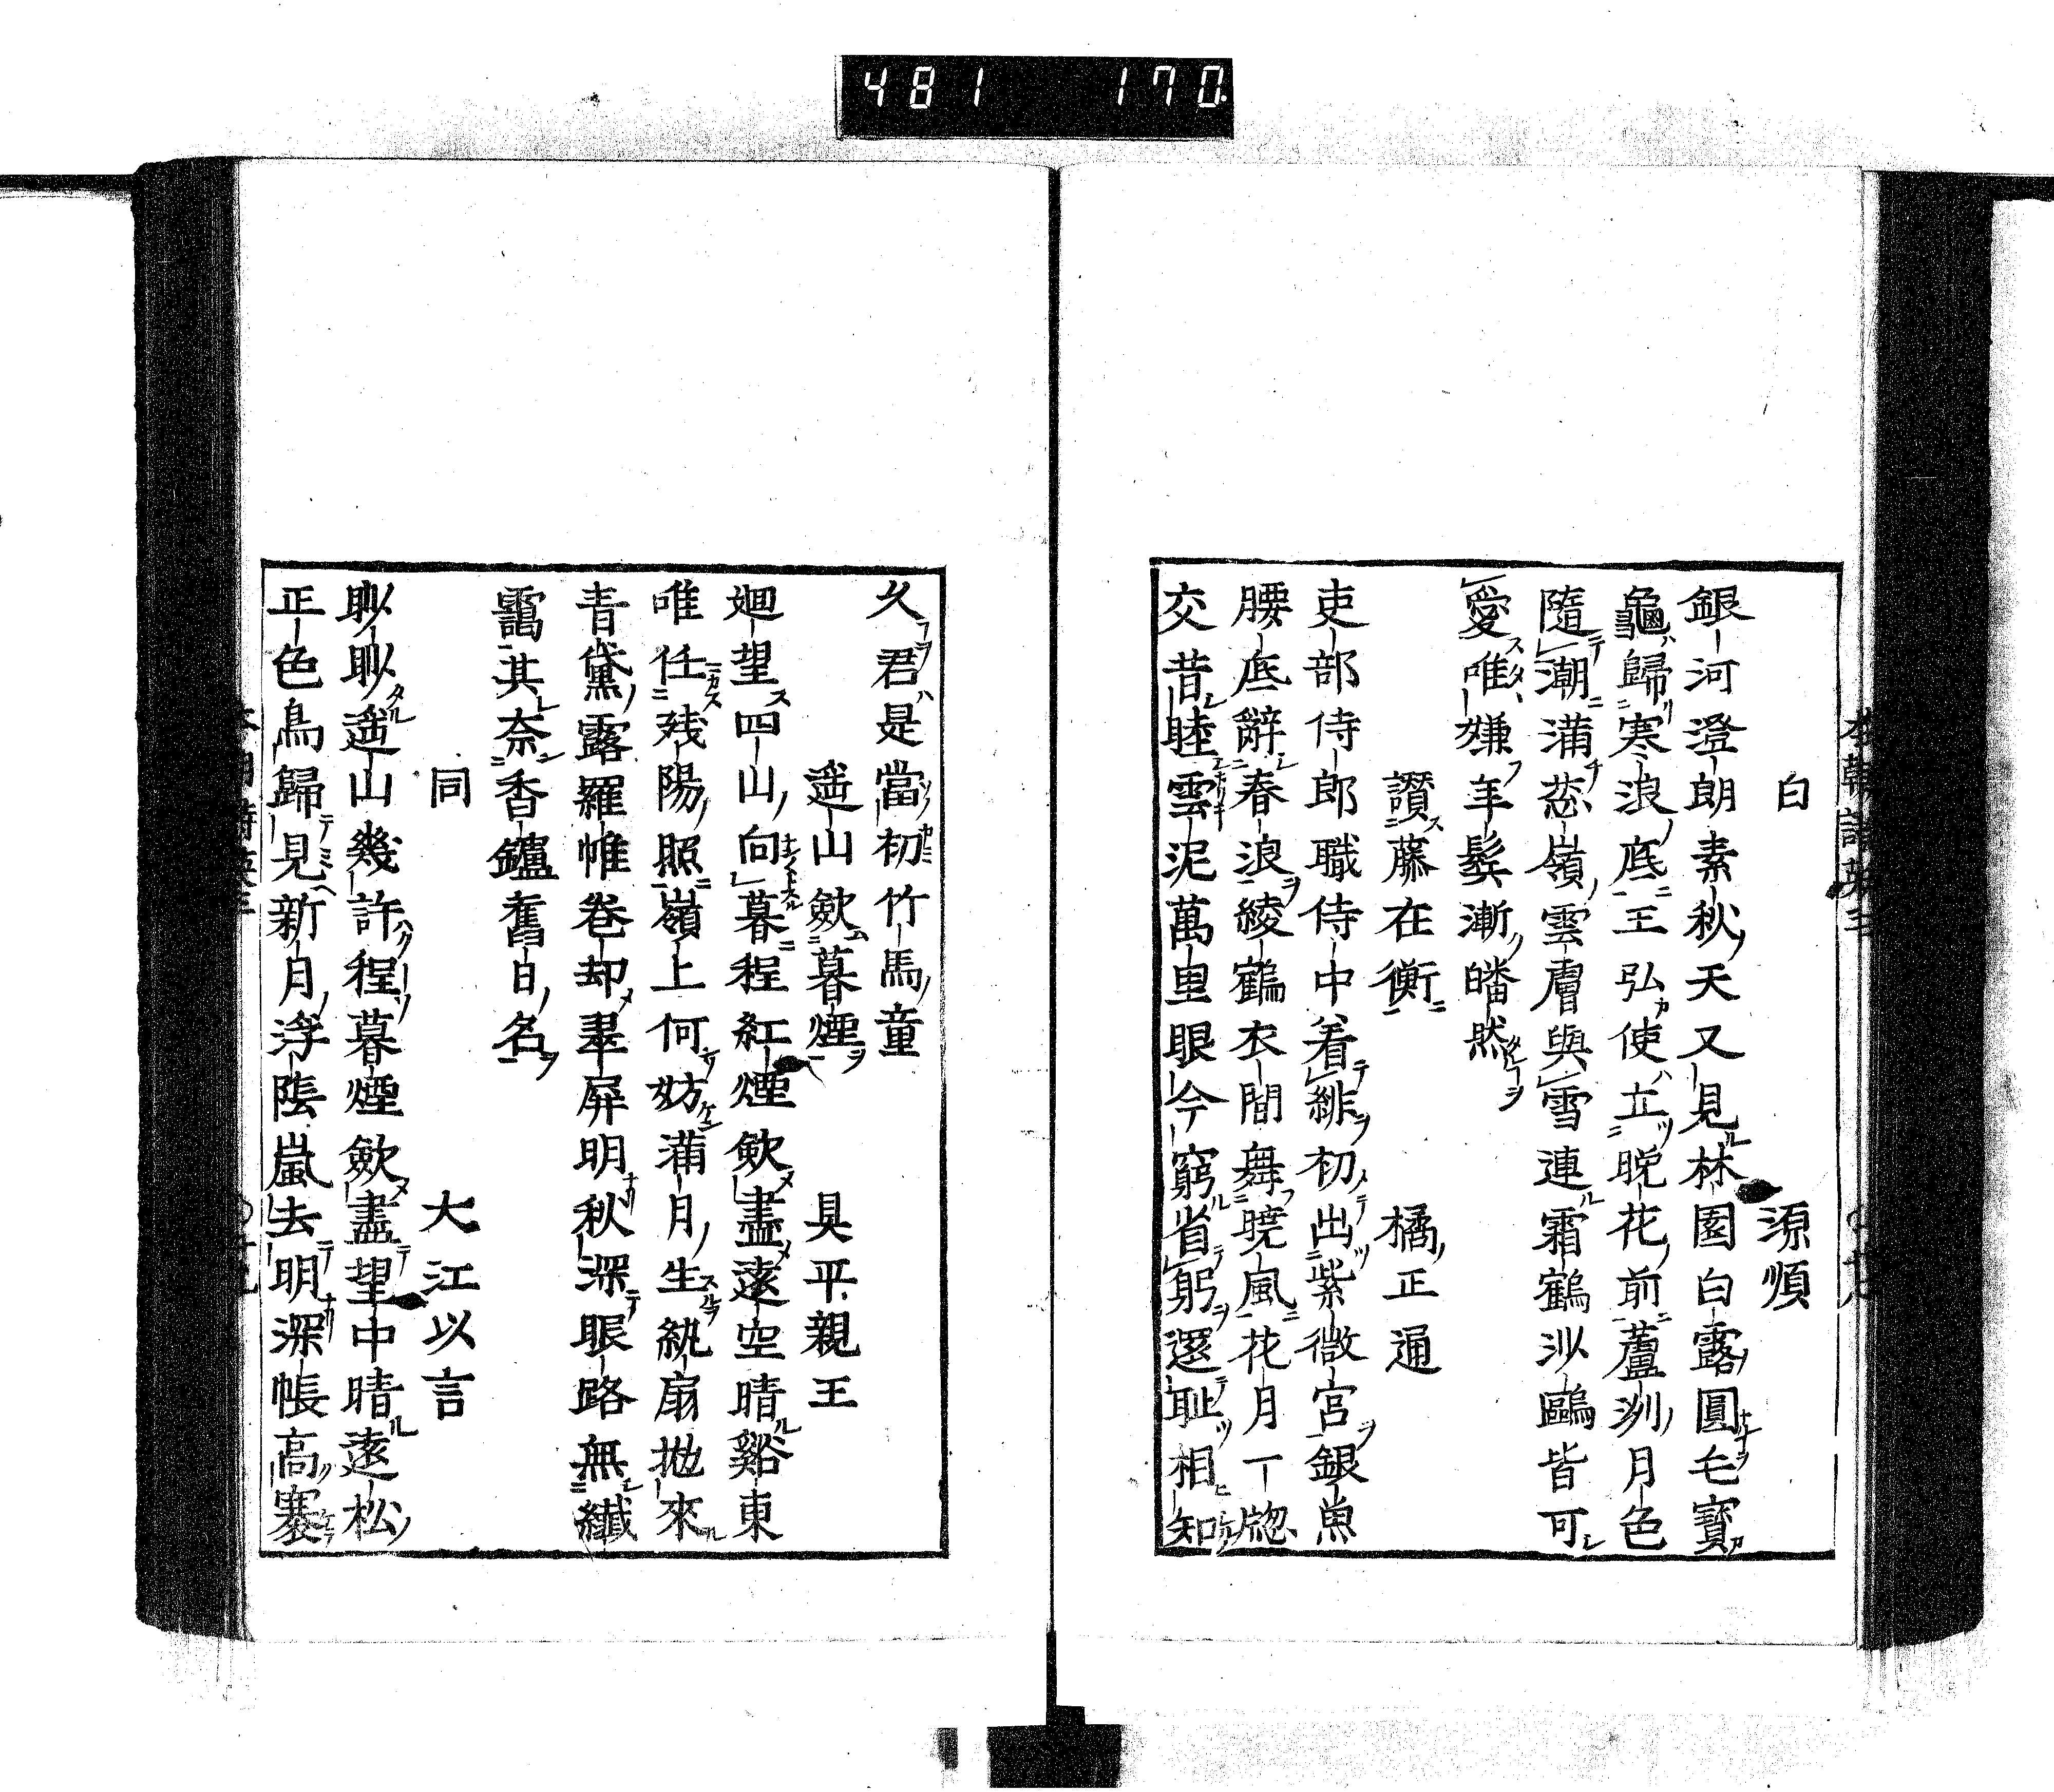 481 170
白 源順
銀河澄朗素秋天又見林園白露圓毛寶
龜歸寒浪底王弘使立晩花前蘆洲月色
隨潮滿葱嶺雲膚與雪連霜鶴沙鷗皆可
愛唯嫌年鬢漸皤然
讃藤在衡 橘正通
吏部侍郎職侍中着緋初出紫微宮銀魚
腰底辭春浪綾鶴衣間舞曉風花月一牕
交昔睦雲泥萬里眼今窮省躬還耻相知
久君是當初竹馬童
遥山歛暮煙 具平親王
廻望四山向暮程紅煙歛盡遠空晴谿東
唯任残陽照嶺上何妨滿月生紈扇抛來
青黛露羅帷卷却翠屏明秋深眼路無纎
靄其奈香鑪舊日名
同 大江以言
眇眇遥山幾許程暮煙歛盡望中晴遠松
正色鳥歸見新月浮陰嵐去明深帳高褰